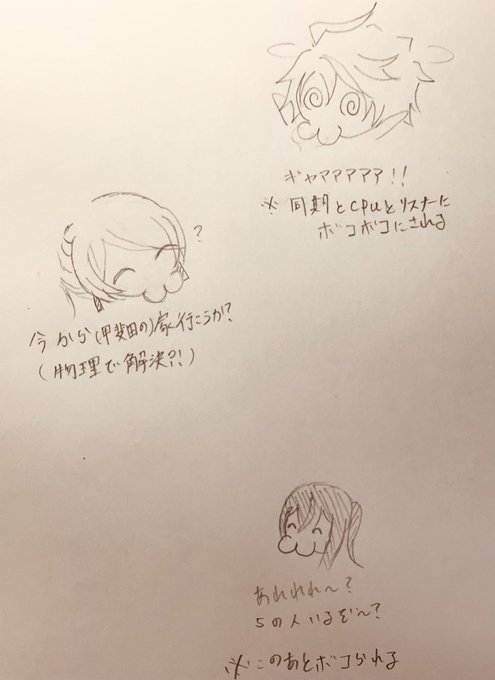 ギャアアアアア!!
※同期とCPUとリスナーに
ボコボコにされる
?
今から(甲斐田の)家行こうか?
(物理で解決?!)
あれれれ〜?
5の人いるぞ〜?
※このあとボコられる